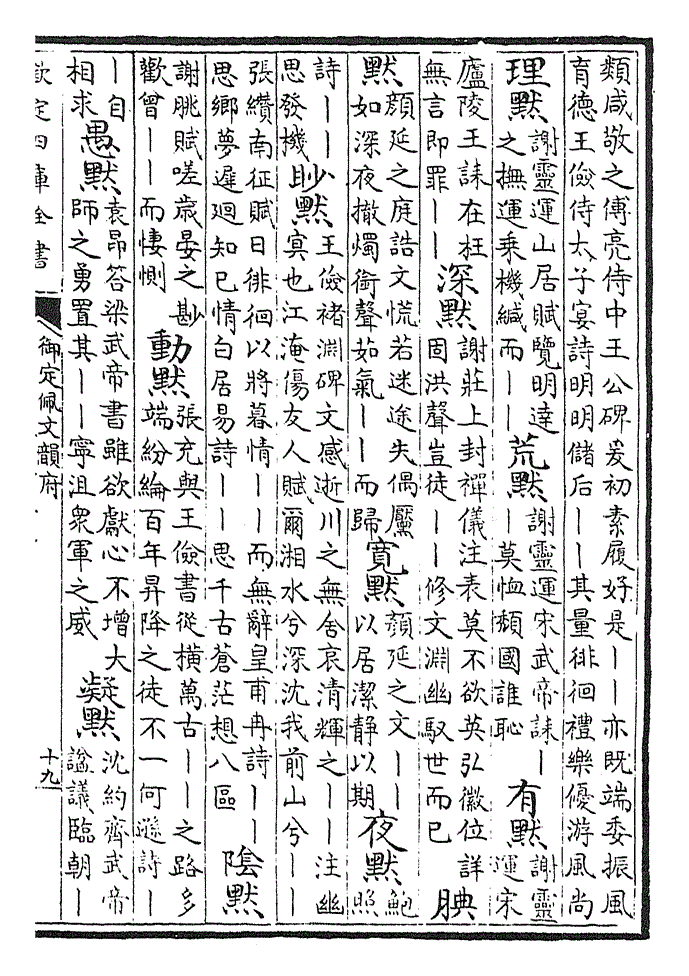 類咸敬之傅亮侍中王公碑爰初素履好是丨丨亦既端委振風
育德王儉侍太子宴詩明明儲后丨丨其量徘徊禮樂優游風尚
理默 謝靈運山居賦覽明達之撫運乘機緘而丨丨 荒默 謝靈運宋武帝誄丨丨莫恤頽國誰恥 有默 謝靈運宋
廬陵王誄在枉無言即罪丨丨 深默 謝莊上封禪儀注表莫不欲英弘徽位詳固洪聲豈徒丨丨修文淵幽馭世而已 腆
默 顔延之庭誥文慌若迷途失偶黶如深夜撤燭銜聲茹氣丨丨而歸 寬默 顔延之文丨丨以居潔静以期 夜默 鮑照
詩丨丨思發機 眇默 王儉褚淵碑文感逝川之無舍哀清輝之丨丨注幽冥也江淹傷友人賦爾湘水兮深沈我前山兮丨丨
張纘南征賦日徘徊以將暮情丨丨而無辭皇甫冉詩丨丨思鄉夢遲迴知已情白居易詩丨丨思千古蒼茫想八區 陰默
謝朓賦嗟歲晏之尠歡曾丨丨而悽惻 動默 張充與王儉書從橫萬古丨丨之路多端紛綸百年昇降之徒不一何遜詩丨
丨自相求 愚默 袁昂答梁武帝書雖欲獻心不增大師之勇置其丨丨寧沮衆軍之威 凝默 沈約齊武帝諡議臨朝丨
欽定四庫全書 御定佩文韻府 十九